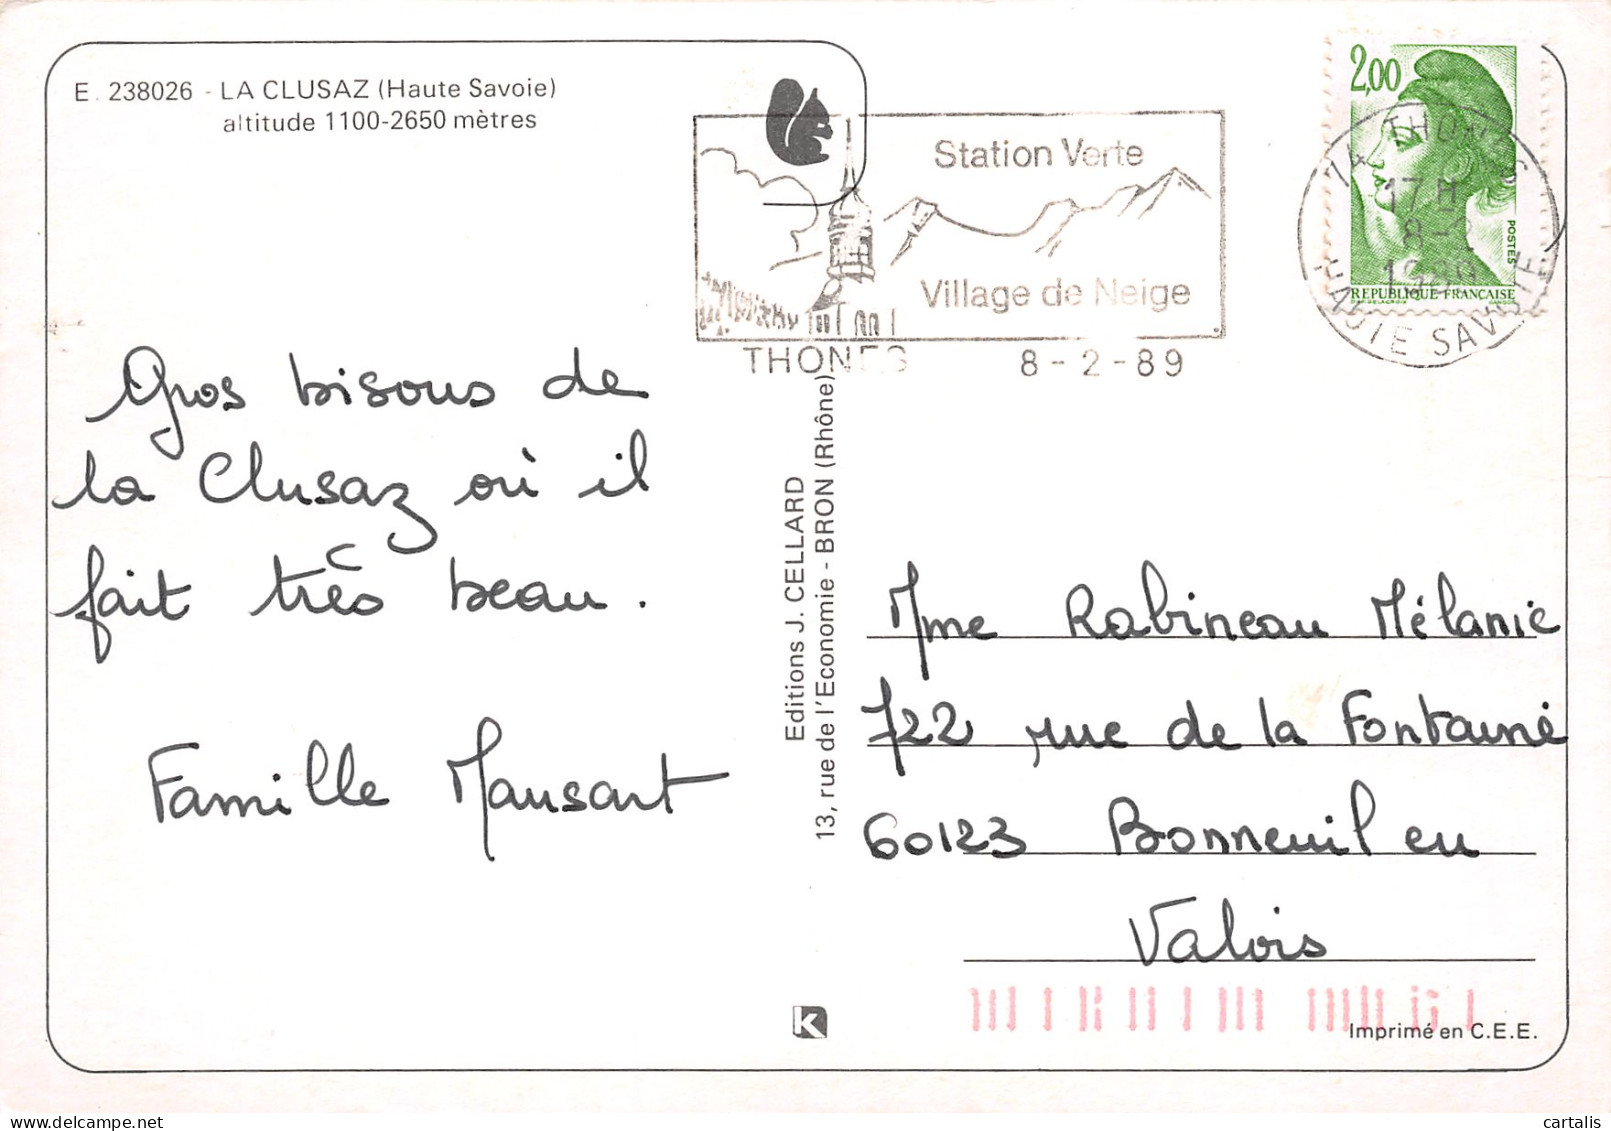 E. 238026 - LA CLUSAZ (Haute Savoie)
altitude 1100-2650 mètres
Station Verte
Village de Neige
THONES 8-2-89
2,00
POSTES
REPUBLIQUE FRANÇAISE
74 THONES
17H
8-2
1989
HAUTE SAVOIE
Gros bisous de
la Clusaz où il
fait très beau.
Famille Mansart
Editions J. CELLARD
13, rue de l'Economie - BRON (Rhône)
Mme Rabineau Mélanie
722 rue de la Fontaine
60123 Bonneuil en
Valois
K
Imprimé en C.E.E.
cartalis